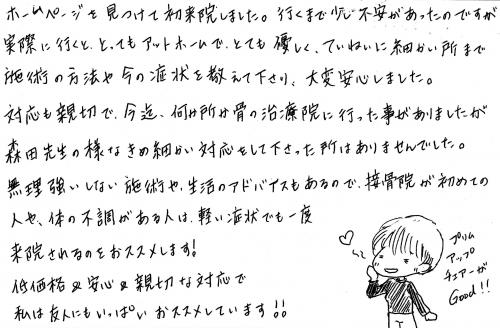 ホームページを見つけて初来院しました。行くまで少し不安があったのですが
実際に行くと、とってもアットホームで、とても優しく、ていねいに細かい所まで
施術の方法や今の症状を教えて下さり、大変安心しました。
対応も親切で、今迄、何か所か骨の治療院に行った事がありましたが
森田先生の様なきめ細かい対応をして下さった所はありませんでした。
無理強いしない施術や、生活のアドバイスもあるので、接骨院が初めての
人や、体の不調がある人は、軽い症状でも一度
来院されるのをおススメします!
低価格&安心&親切な対応で
私は友人にもいっぱいおススメしています!!
プリム
アップ
チェアーが
Good!!